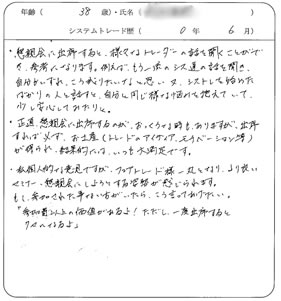 年齢( 38 歳)・氏名(
システムトレード歴( 0 年 6 月)
・懇親会に出席すると、様々なトレーダーの話を聞くことがで
き、参考になります。例えば、もう一歩のシス達の話を聞き、
自分もいずれ、こう成りたいなぁと思い、又、シストレを始めた
ばかりの人と話すと、自分と同じ様な悩みを抱えていて、
少し安心してみたりと。
・正直、懇親会に出席するのが、おっくうな時も、ありますが、出席
すれば必ず、お土産(トレードのアイデア、モチベーション等)
が得られ、結果的には、いつも大満足です。
・私個人的な意見ですが、フェアトレード様一丸となり、より良い
セミナー、懇親会にしようとする姿勢が感じられます。
もし、参加された事がない方がいたら、こう言ってあげたい。
「参加費以上の価値があるよ!ただし、一度出席すると
クセになるよ」